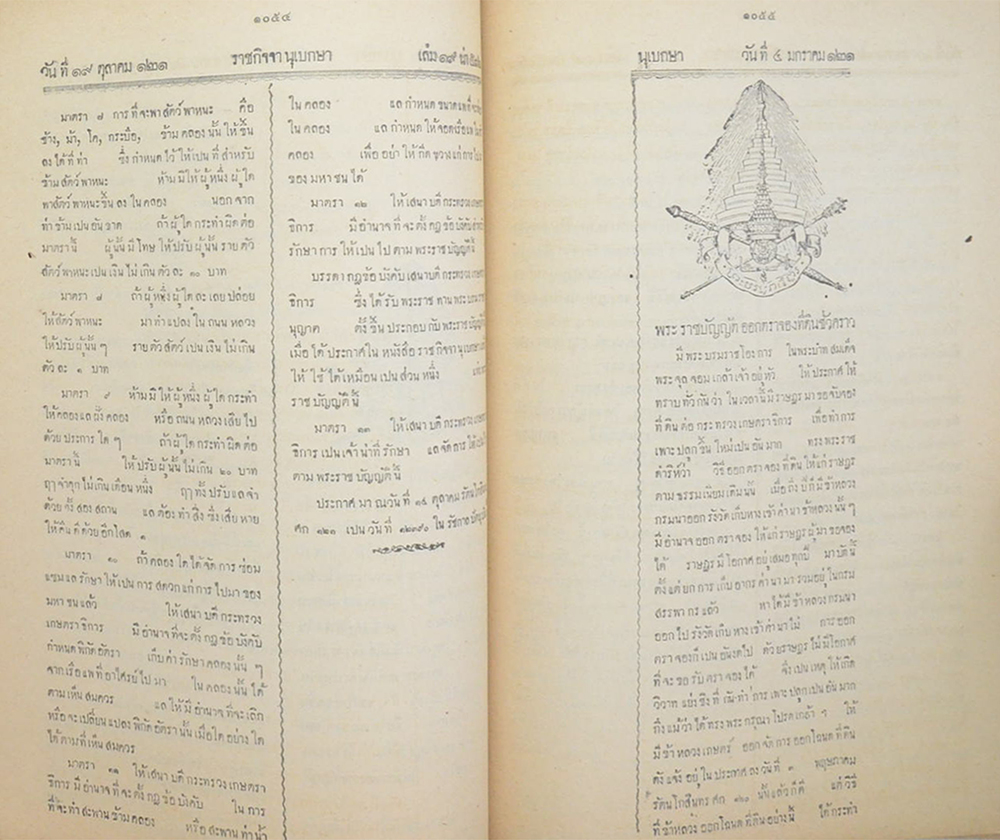 ๑๐๕๔
วันที่ ๑๙ ตุลาคม ๑๒๑
ราชกิจจานุเบกษา
เล่ม ๑๙ น่า
มาตรา ๗ การที่จะพาสัตว์พาหนะ คือ
ช้าง, ม้า, โค, กระบือ, ข้ามคลองนั้น ให้ขึ้น
ลงได้ที่ท่า ซึ่งกำหนดไว้ให้เปนที่สำหรับ
ข้ามสัตว์พาหนะ ห้ามมิให้ผู้หนึ่งผู้ใด
พาสัตว์พาหนะขึ้นลงในคลอง นอกจาก
ท่าข้ามเปนอันขาด ถ้าผู้ใดกระทำผิดต่อ
มาตรานี้ ผู้นั้นมีโทษให้ปรับผู้นั้นรายตัว
สัตว์พาหนะเปนเงินไม่เกินตัวละ ๑๐ บาท
มาตรา ๘ ถ้าผู้หนึ่งผู้ใดละเลยปล่อย
ให้สัตว์พาหนะ มาทำแปลงในถนนหลวง
ให้ปรับผู้นั้น ๆ รายตัวสัตว์เปนเงินไม่เกิน
ตัวละ ๑ บาท
มาตรา ๙ ห้ามมิให้ผู้หนึ่งผู้ใดกระทำ
ให้คลองแลฝั่งคลอง หรือถนนหลวงเสียไป
ด้วยประการใด ๆ ถ้าผู้ใดกระทำผิดต่อ
มาตรานี้ ให้ปรับผู้นั้นไม่เกิน ๒๐ บาท
ฤๅจำคุกไม่เกินเดือนหนึ่ง ฤๅทั้งปรับแลจำ
ด้วยทั้งสองสถาน แลต้องทำสิ่งซึ่งเสียหาย
ให้คืนดีด้วยอีกโสด ๑
มาตรา ๑๐ ถ้าคลองใดได้จัดการซ่อม
แซมแลรักษาให้เปนการสดวกแก่การไปมาของ
มหาชนแล้ว ให้เสนาบดีกระทรวง
เกษตราธิการ มีอำนาจที่จะตั้งกฎข้อบังคับ
กำหนดพิกัดอัตรา เก็บค่ารักษาคลองนั้น ๆ
จากเรือแพที่อาไศรย์ไปมา ในคลองนั้นได้
ตามเห็นสมควร แลให้มีอำนาจที่จะเลิก
หรือจะเปลี่ยนแปลงพิกัดอัตรานั้นเมื่อใดอย่างใด
ได้ตามที่เห็นสมควร
มาตรา ๑๑ ให้เสนาบดีกระทรวงเกษตรา
ธิการมีอำนาจที่จะตั้งกฎข้อบังคับ ในการ
ที่จะทำสะพานข้ามคลอง หรือสะพานท่าน้ำ
ในคลอง แลกำหนดขนาดแพที่จะ
ในคลอง แลกำหนดให้จอดเรือแพ
คลอง เพื่ออย่าให้กีดขวางแก่การ
ของมหาชนได้
มาตรา ๑๒ ให้เสนาบดีกระทรวง
ธิการ มีอำนาจที่จะตั้งกฎข้อบังคับ
รักษาการให้เปนไปตามพระราชบัญญัตินี้
บรรดากฎข้อบังคับเสนาบดีกระทรวงเกษตรา
ธิการ ซึ่งได้รับพระราชทานพระบรมราชา
นุญาต ตั้งขึ้นประกอบกับพระราชบัญญัติ
เมื่อได้ประกาศในหนังสือราชกิจจานุเบกษา
ให้ใช้ได้เหมือนเปนส่วนหนึ่ง
ราชบัญญัตินี้
มาตรา ๑๓ ให้เสนาบดีกระทรวงเกษตรา
ธิการเปนเจ้าน่าที่รักษา แลจัดการให้
ตามพระราชบัญญัตินี้
ประกาศมาณวันที่ ๑๔ ตุลาคม รัตนโกสินทร
ศก ๑๒๑ เปนวันที่ ๑๒๓๙๐ ในรัชกาล
๑๐๕๕
นุเบกษา
วันที่ ๔ มกราคม ๑๒๑
พระราชบัญญัติ ออกตราจองที่ดินชั่วคราว
มีพระบรมราชโองการ ในพระบาทสมเด็จ
พระจุลจอมเกล้าเจ้าอยู่หัว ให้ประกาศให้
ทราบทั่วกันว่า ในเวลานี้มีราษฎรมาขอจับจอง
ที่ดินต่อกระทรวงเกษตราธิการ เพื่อทำการ
เพาะปลูกขึ้นใหม่เปนอันมาก ทรงพระราช
ดำริห์ว่า วิธีออกตราจองที่ดินให้แก่ราษฎร
ตามธรรมเนียมเดิมนั้น เมื่อถึงปีก็มีข้าหลวง
กรมนาออกรังวัดเก็บหางเข้าค่านา ข้าหลวงนั้น ๆ
มีอำนาจออกตราจอง ให้แก่ราษฎรผู้มาขอจอง
ได้ ราษฎรมีโอกาศอยู่เสมอทุกปี มาบัดนี้
ตั้งแต่ยกการเก็บอากรค่านามารวมอยู่ในกรม
สรรพากรแล้ว หาได้มีข้าหลวงกรมนา
ออกไปรังวัดเก็บหางเข้าค่านาไม่ การออก
ตราจองก็เปนอันงดไป ด้วยราษฎรไม่มีโอกาศ
ที่จะขอรับตราจองได้ จึงเปนเหตุให้เกิด
วิวาทแย่งชิงที่กัน ทำการเพาะปลูกเปนอันมาก
ถึงแม้ว่าได้ทรงพระกรุณาโปรดเกล้า ๆ ให้
มีข้าหลวงเกษตร์ ออกจัดการออกโฉนดที่ดิน
ดังแจ้งอยู่ในประกาศลงวันที่ ๑ พฤษภาคม
รัตนโกสินทรศก ๑๒๐ นั้นแล้วก็ดี แต่วิธี
ที่ข้าหลวงออกโฉนดที่ดินอย่างนี้ ได้กระทำ